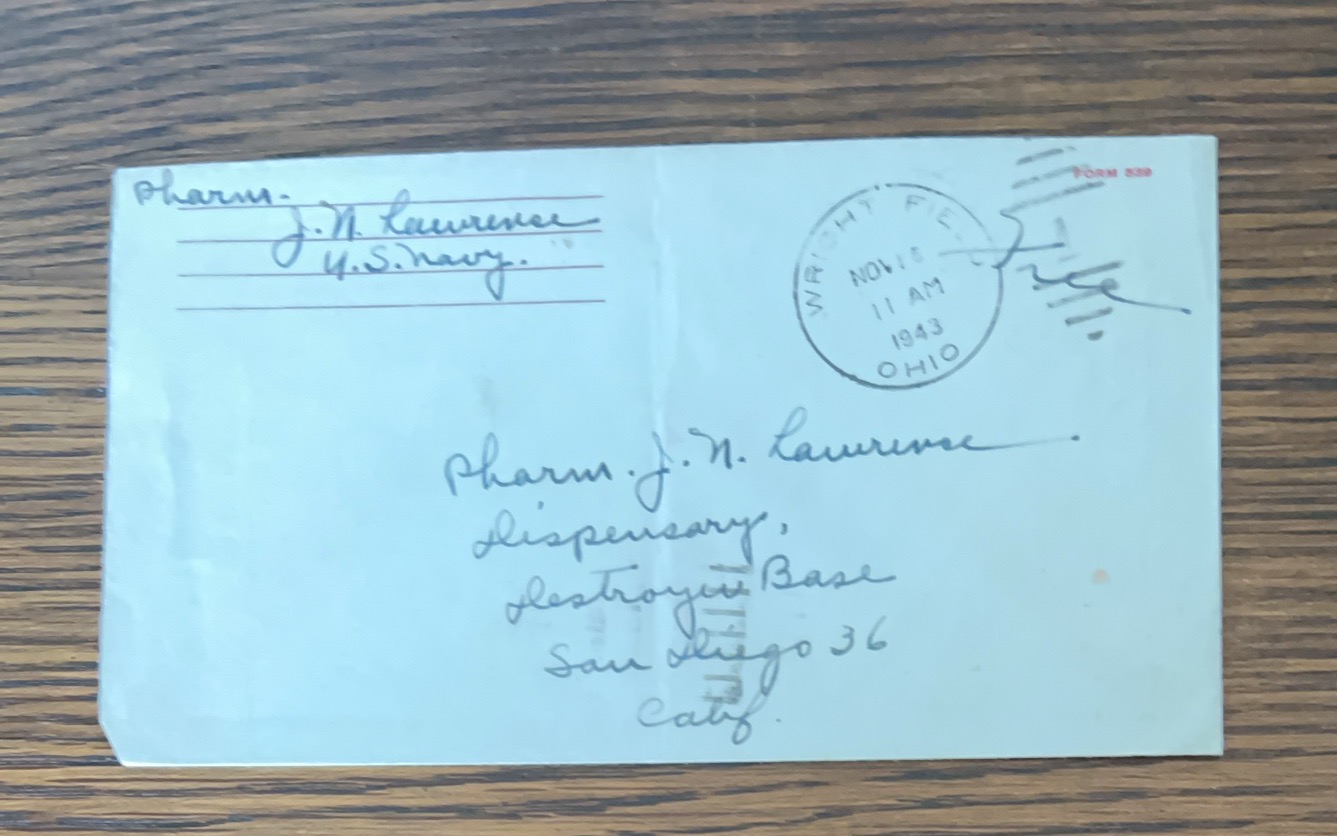 Pharm.
J. N. Lawrence
U.S. Navy.
FORM 539
WRIGHT FIE
NOV 1
11 AM
1943
OHIO
Free
Pharm. J. N. Lawrence
Dispensary,
Destroyer Base
San Diego 36
Calif.